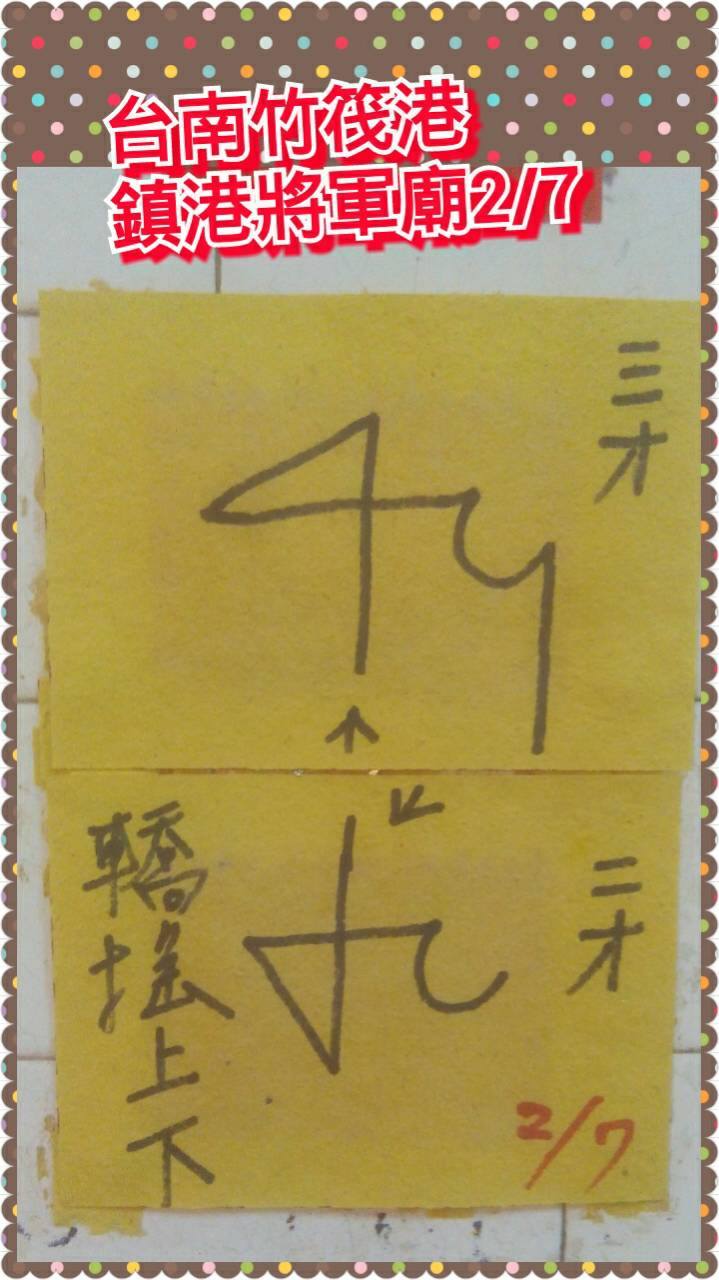 台南竹筏港
鎮港將軍廟2/7
三才
二才
轎搖上下
2/7